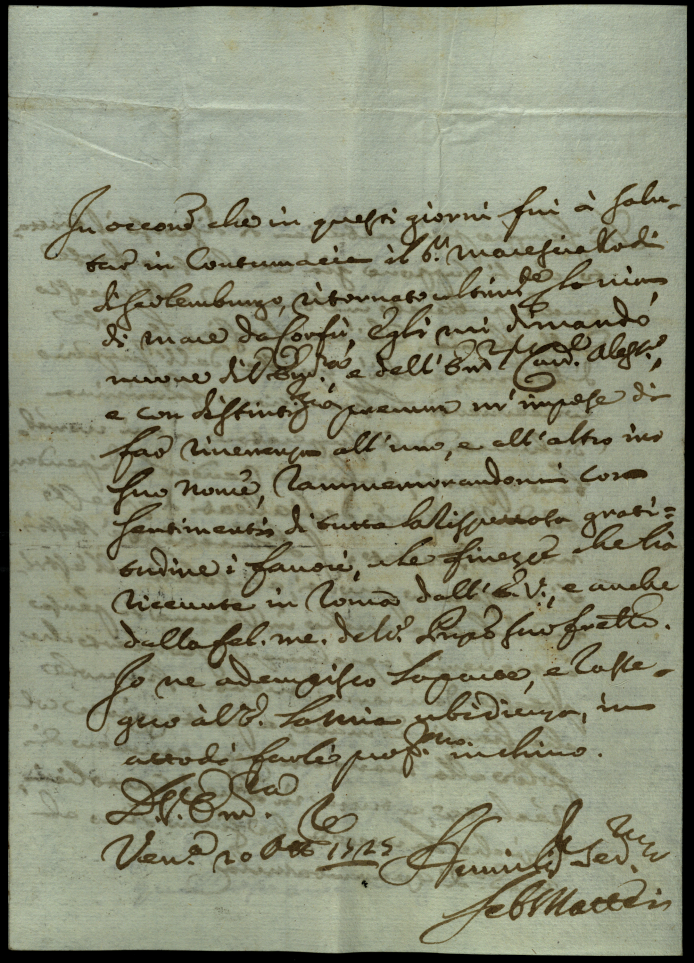 In occone che in questi giorni fui à salu-
tar in Contumacia il S.r Maresciallo di
di Scolemburgo, ritornato ultim.te
di mare da Corfù, Egli mi dimandò
nuove di V. Em.za e dell' Em.mo Card. Aless.o,
e con distintis.ma premura m' impose di
far riverenza all' uno, e all' altro in
suo nome, rammemorandomi con
sentimenti di tutta la rispettosa grati=
tudine i favori, e le finezze che hà
ricevute in Roma dall' E. V., e anche
dalla fel. me. del S.r suo frello.
Io ne adempisco le parti, e rasse-
gno à V. E. la mia ubidienza, in
atto di farle prof.mo inchino.
D. V. Em.za
Ven.a 20 Ott.e 1725
Humilis.
Seb